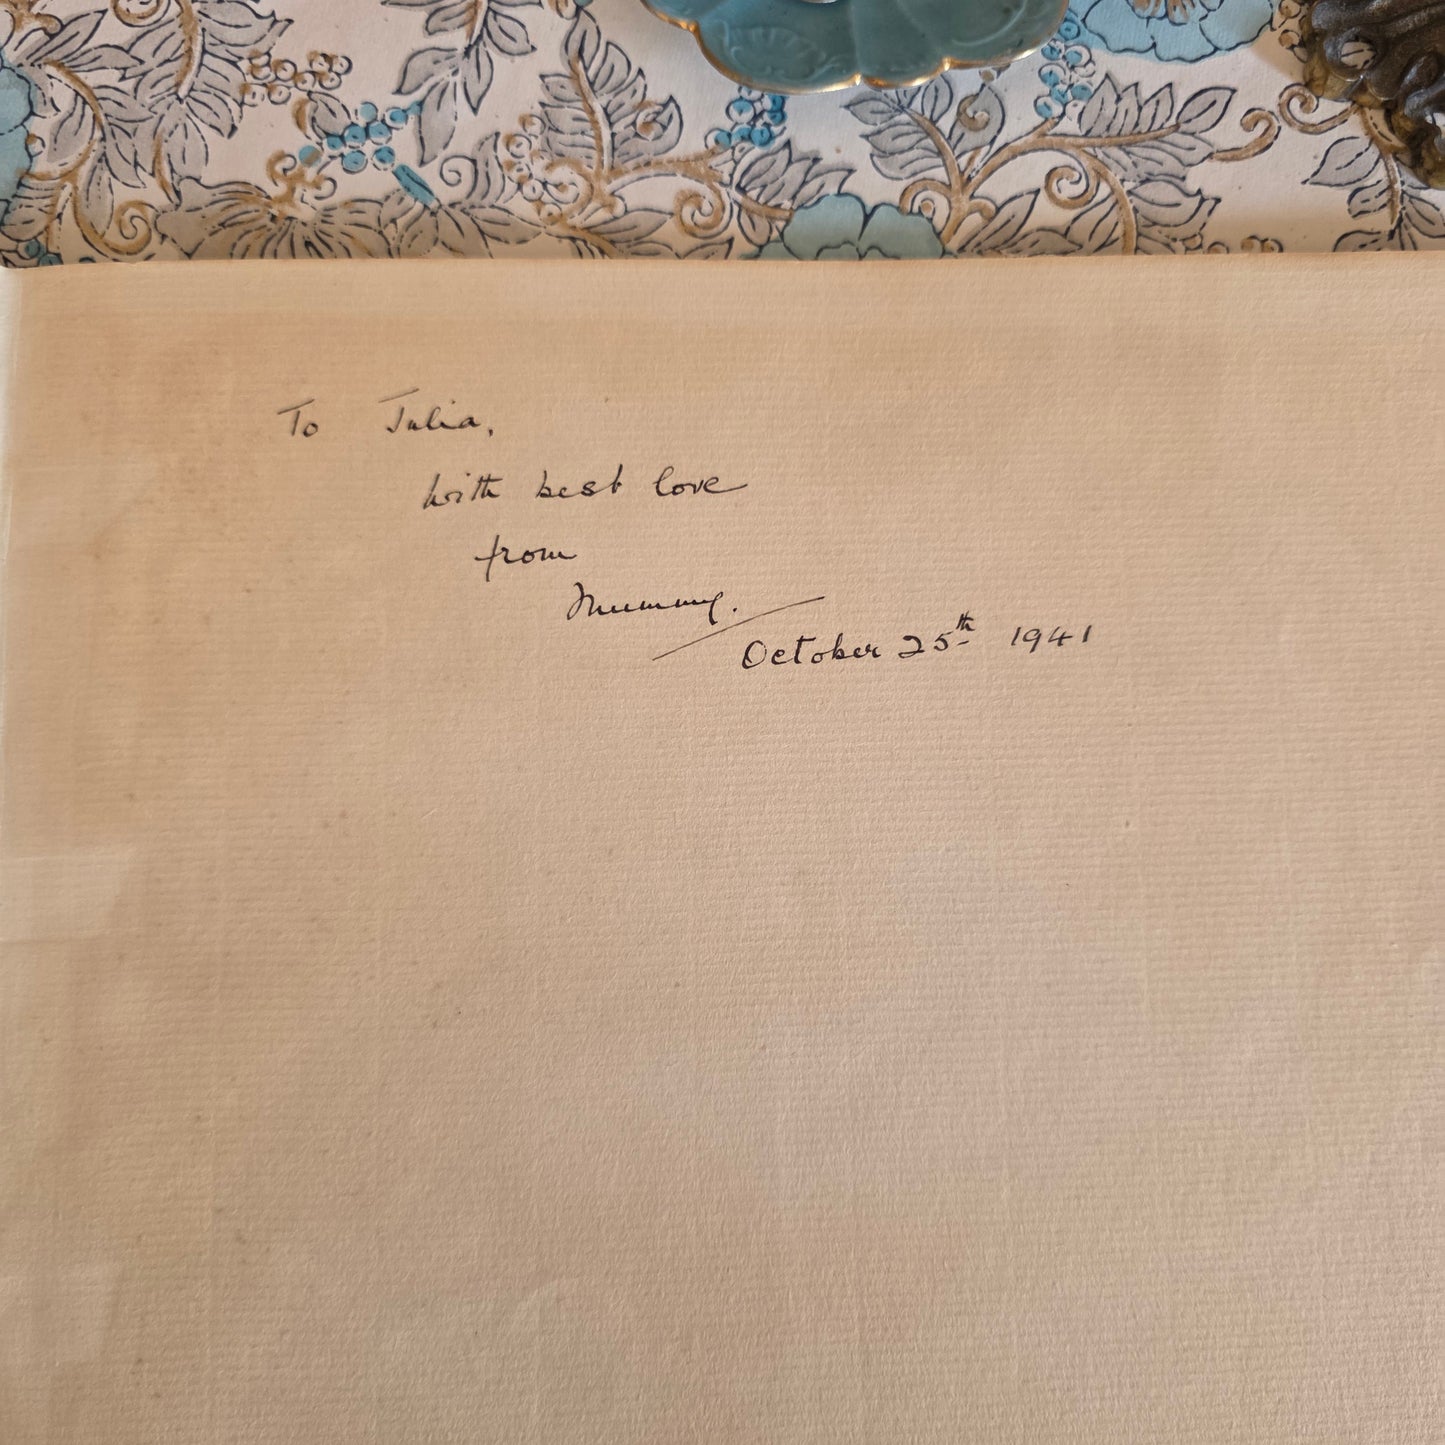 To Julia,
with best love
from
Mummy.
October 25th 1941